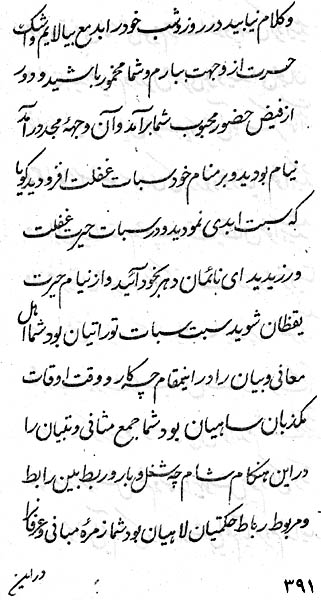 و کلام نیابید در روز و شب خود را بدمع بیالایم و اشک
حسرت از وجهت ببارم و شما مخمور باشید و دور
از فیض حضور محبوب شما برآمد و آن وجههٔ مجد درآمد
نیام بودید و بر منام خود سبات غفلت افزودید گویا
که سبت ابدی نمودید و در سبات حیرت غفلت
ورزیدید ای نائمان دهر بخود آئید و از نیام حیرت
یقظان شوید سبت سبات توراتیان بود شما اهل
معانی و بیان را در اینمقام چه کار و وقت اوقات
مکذبان ساهیان بود شما جمع مثانی و تبیان را
در این هنکام شام چه شغل و بار و ربط بین رابط
و مربوط رباط حکمتیان لاهیان بود شما زمرهٔ مبانی و عرفانرا
در این
۳۹۱